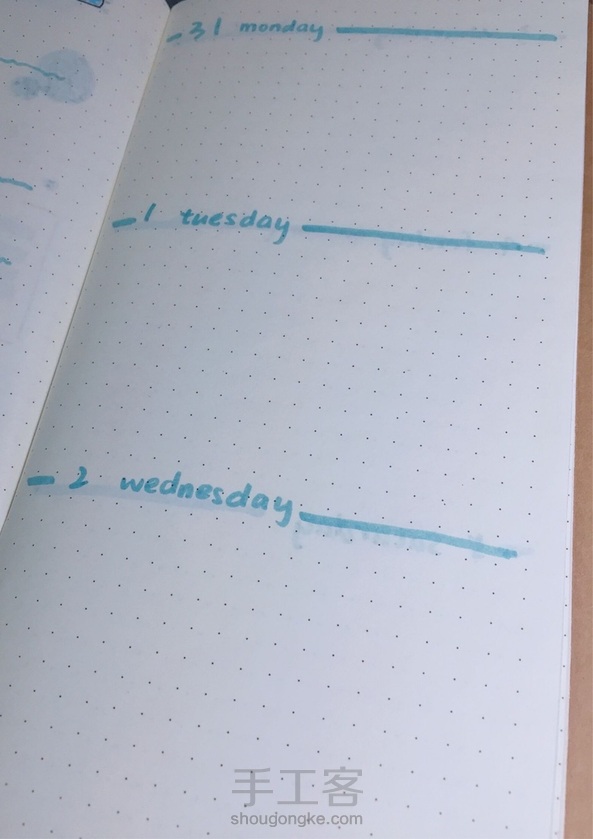 31 monday
1 tuesday
2 wednesday
手工客
shougongke.com